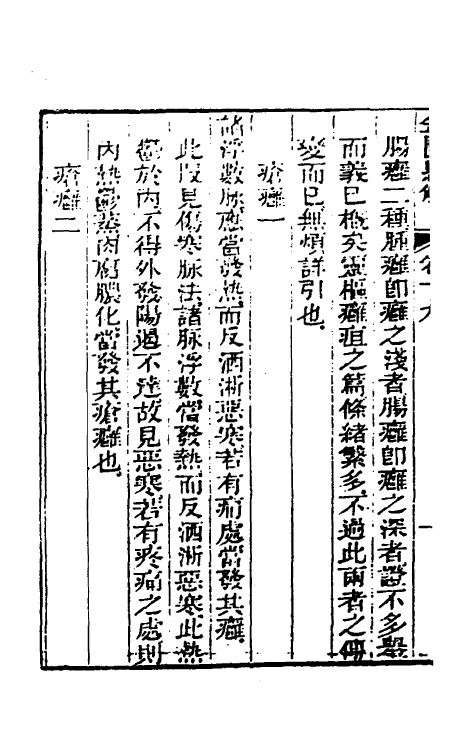 金匱懸解 卷十九 一
腸癰二種肺癰即癰之淺者腸癰即癰之深者證不多舉
而義已概矣靈樞癰疽之篇條緒繁多不過此兩者之傳
變而已無煩詳引也
瘡癰一
諸浮數脈應當發熱而反洒淅惡寒若有痛處當發其癰
此段見傷寒脈法諸脈浮數當發熱而反洒淅惡寒此熱
鬱於內不得外發陽遏不達故見惡寒若有疼痛之處則
內熱鬱蒸肉腐膿化當發其瘡癰也
瘡癰二